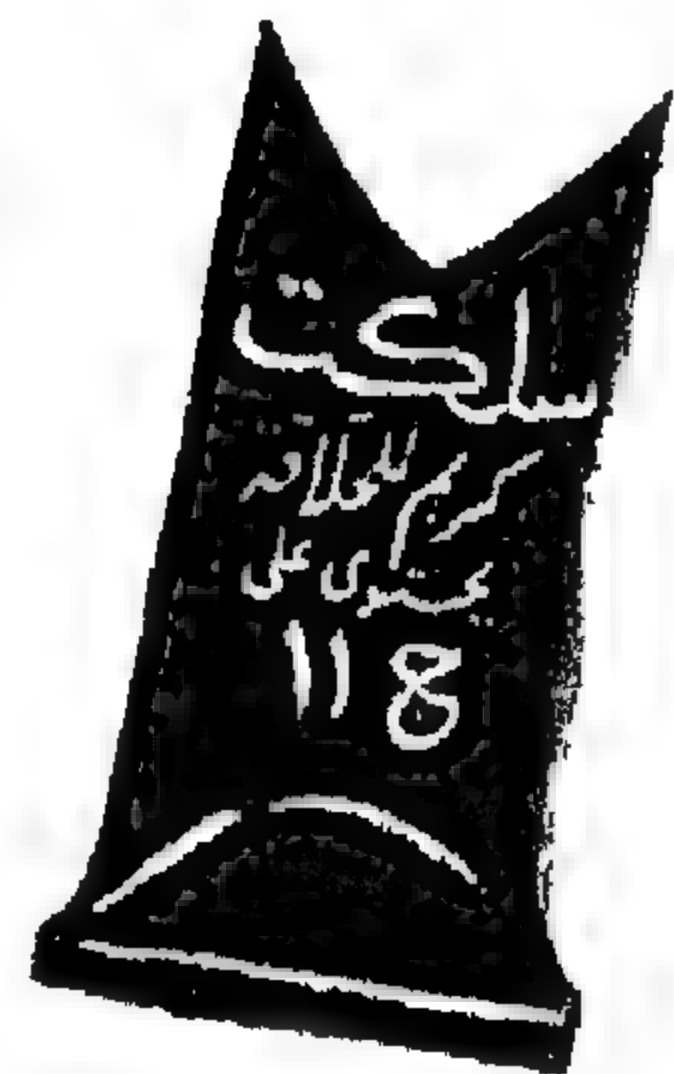 سلكت
كريم للحلاقه
يحتوى على
8 ١١